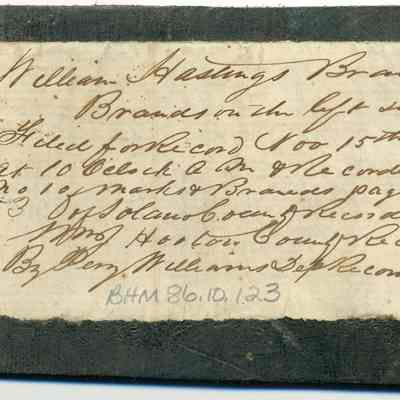 William Hastings Bran
Brands on the left s
Filed for Record Nov 15th
at 10 Oclock A M & Recorde
No 1 of marks & Brands pag
3 of Solano County Record
Hooton County Rec
By Perry Williams Dep Recor
BHM 86.10.123